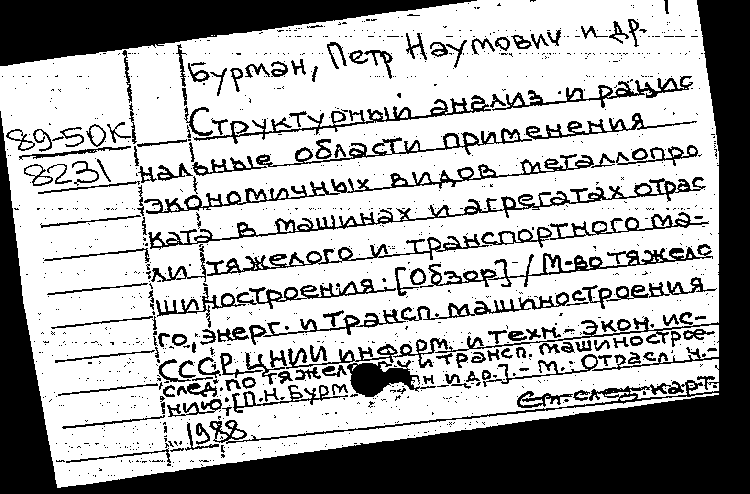 Бурман, Петр Наумович и др.
89-50К
8231
Структурный анализ и рацио
нальные области применения
экономичных видов металлопро
ката в машинах и агрегатах отрас
ли тяжелого и транспортного ма-
шиностроения: [Обзор] / М-во тяжело
го, энерг. и трансп. машиностроения
СССР, ЦНИИ информ. и техн.-экон. ис-
след. по тяжелому и трансп. машинострое-
нию; [П.Н. Бурман и др.]. - М.:
1988.
См. след. карт.